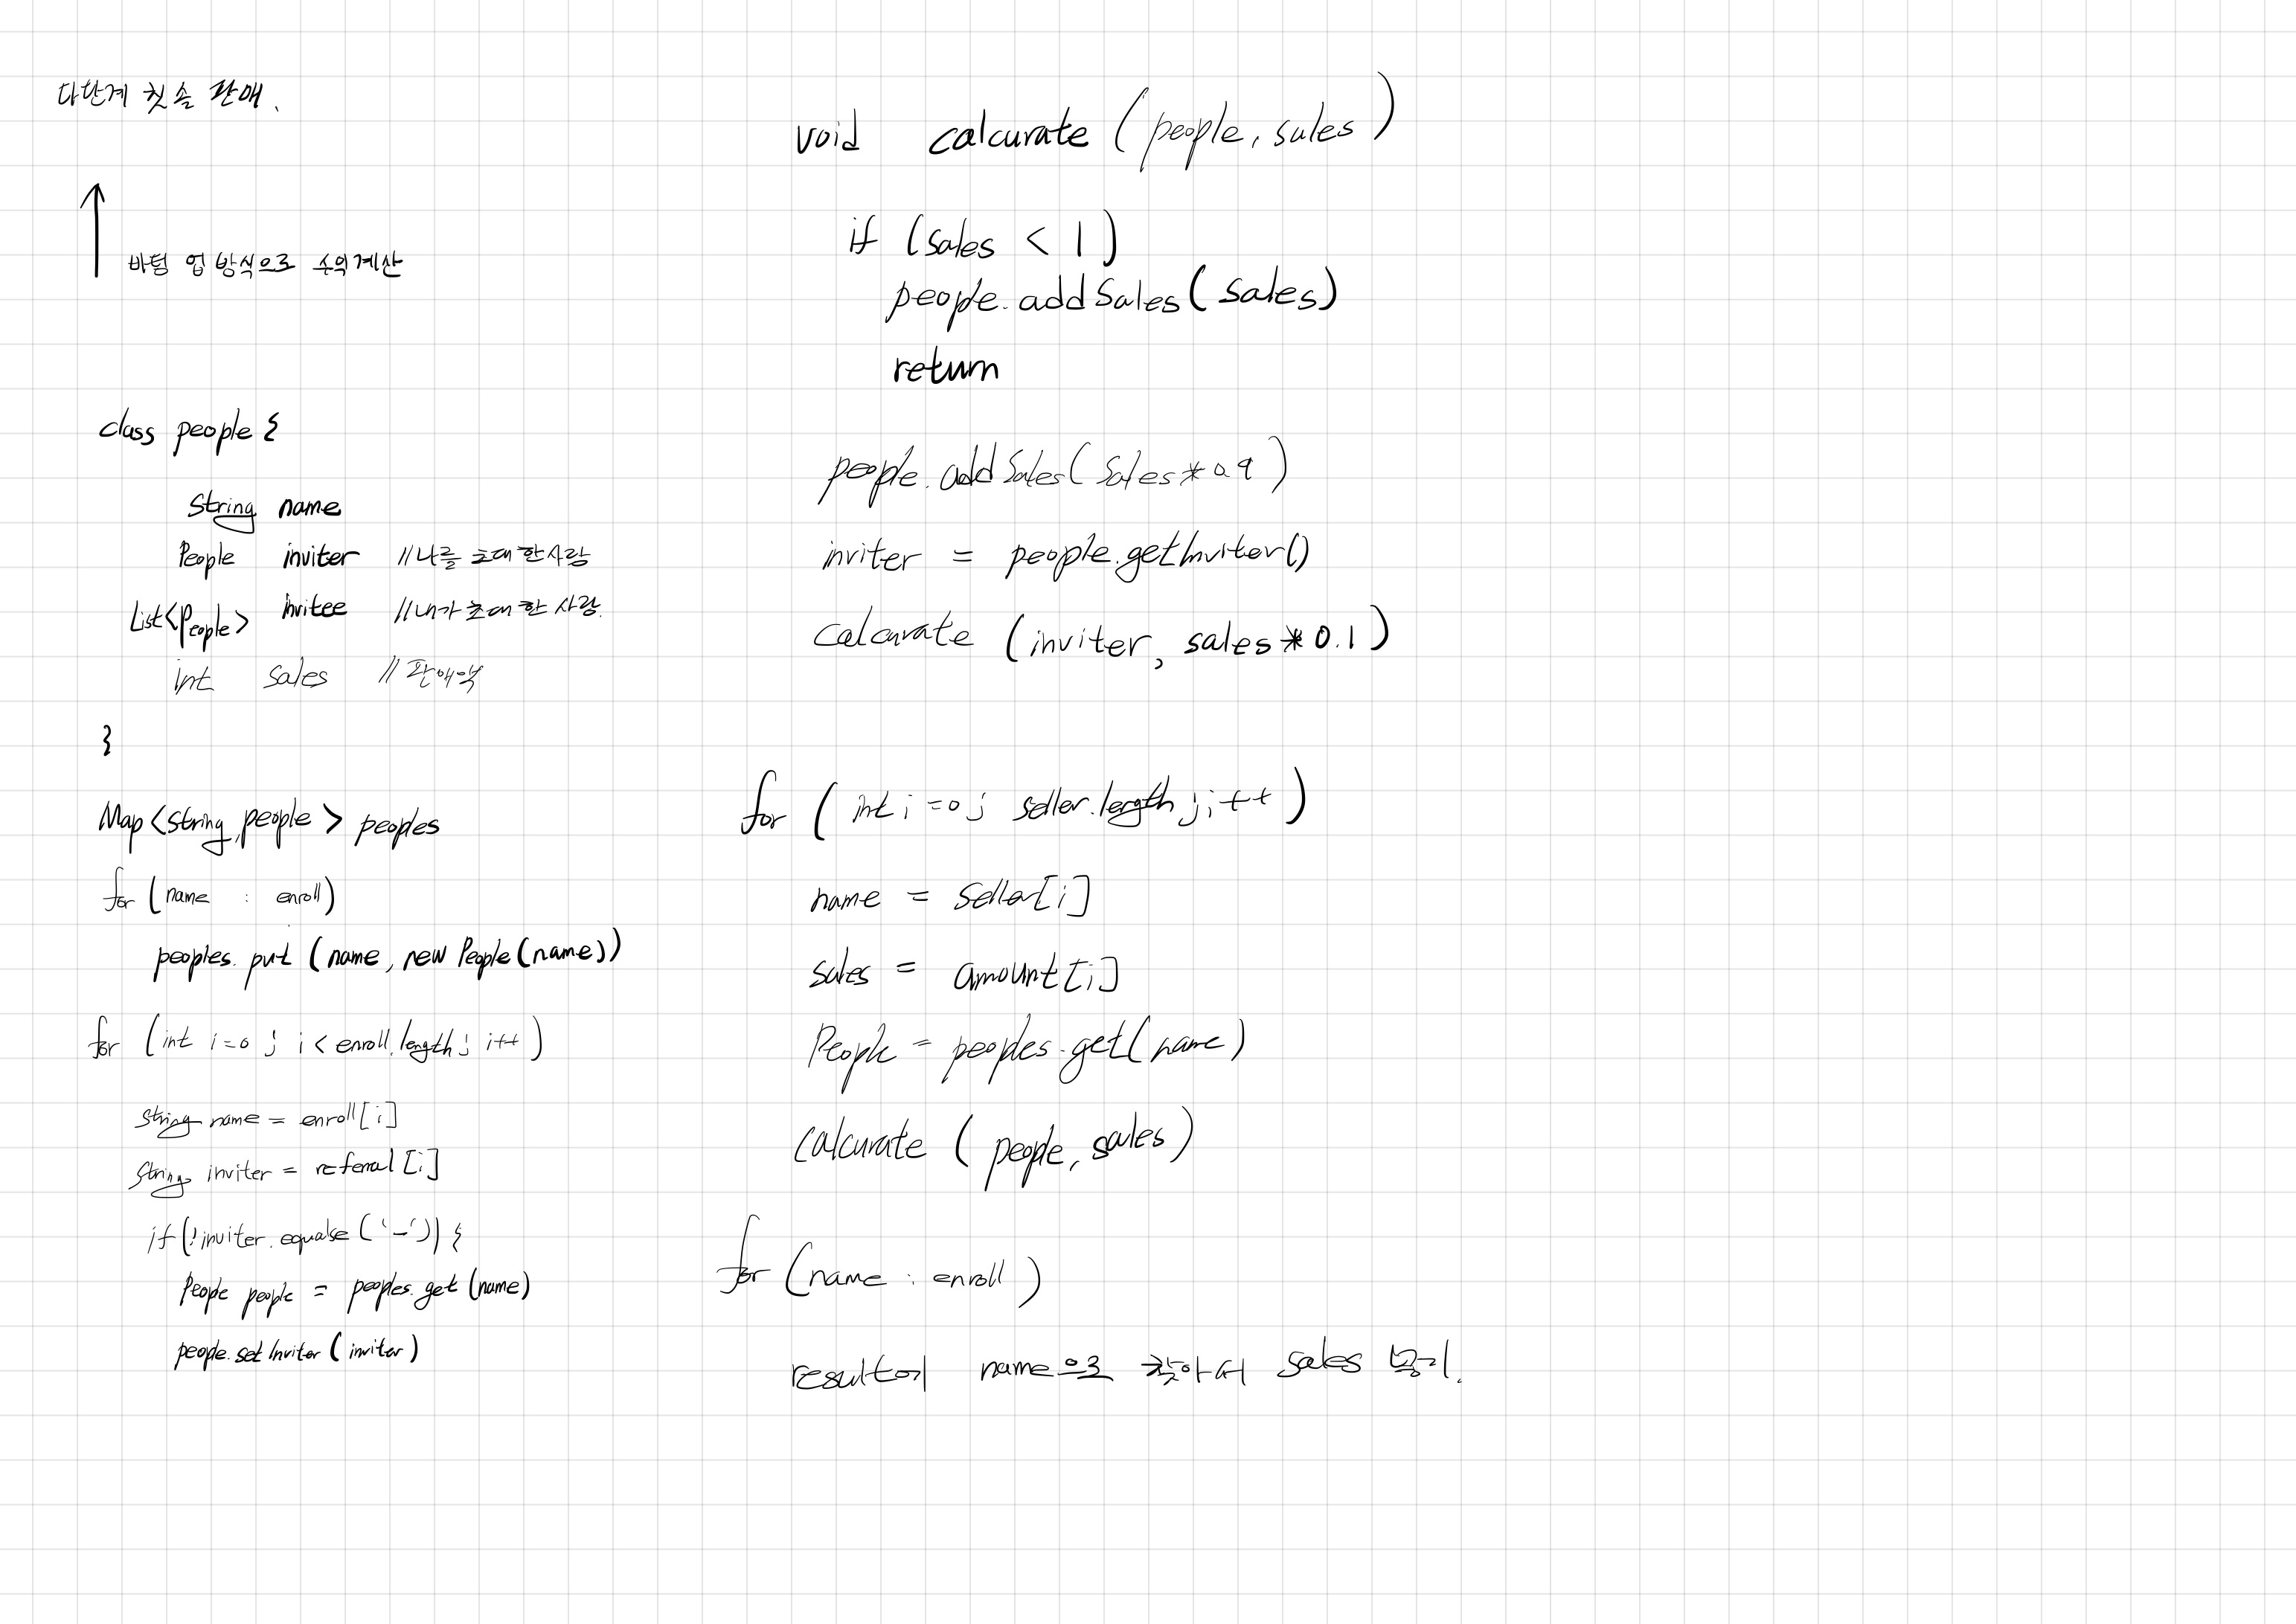 다단계 칫솔 판매.
바텀 업 방식으로 수익계산
class people {
String name
People inviter //나를 초대한사람
List<People> invitee //내가 초대한 사람.
int sales //판매액
}
Map<string,people> peoples
for (name : enroll)
peoples.put (name, new People(name))
for (int i=0; i<enroll.length; i++)
String name = enroll[i]
String inviter = referral[i]
if(!inviter.equalse('-')) {
People people = peoples.get(name)
people.setInviter(inviter)
void calcurate (people, sales)
if (sales < 1)
people.addSales(sales)
return
people.addSales(sales*0.9)
inviter = people.getInviter()
calcurate (inviter, sales*0.1)
for (int i=0; seller.length; i++)
name = seller[i]
sales = amount[i]
People = peoples.get(name)
calcurate (people, sales)
for (name : enroll)
result에 name으로 찾아서 sales 넣기.